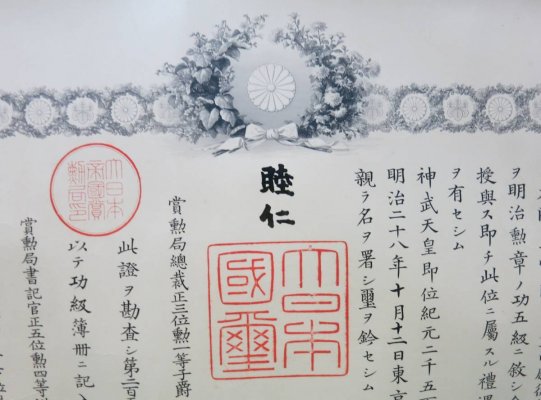 ヲ明治勲章ノ功五級ニ敍シ金
授與ス即チ此位ニ屬スル禮遇
ヲ有セシム
神武天皇即位紀元二千五百
明治二十八年十月十二日東京
親ラ名ヲ署シ璽ヲ鈐セシム
睦仁
大日本國璽
賞勲局總裁正三位勲一等子爵
大日本帝國賞勲局印
此證ヲ勘査シ第二百
以テ功級簿册ニ記入
賞勲局書記官正五位勲四等